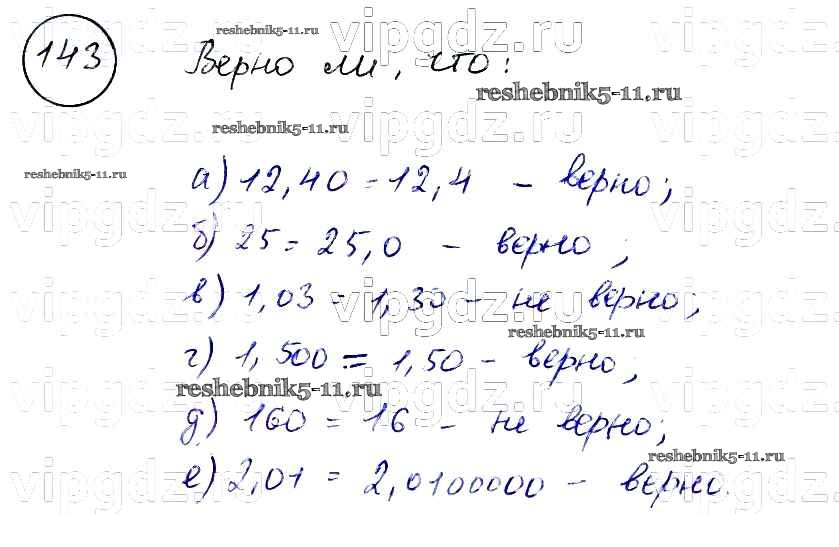 143 Верно ли, что:
а) 12,40 = 12,4 - верно;
б) 25 = 25,0 - верно;
в) 1,03 = 1,30 - не верно;
г) 1,500 = 1,50 - верно;
д) 160 = 16 - не верно;
е) 2,01 = 2,0100000 - верно.
reshebnik5-11.ru
reshebnik5-11.ru
reshebnik5-11.ru
reshebnik5-11.ru
reshebnik5-11.ru
reshebnik5-11.ru
reshebnik5-11.ru
vipgdz.ru